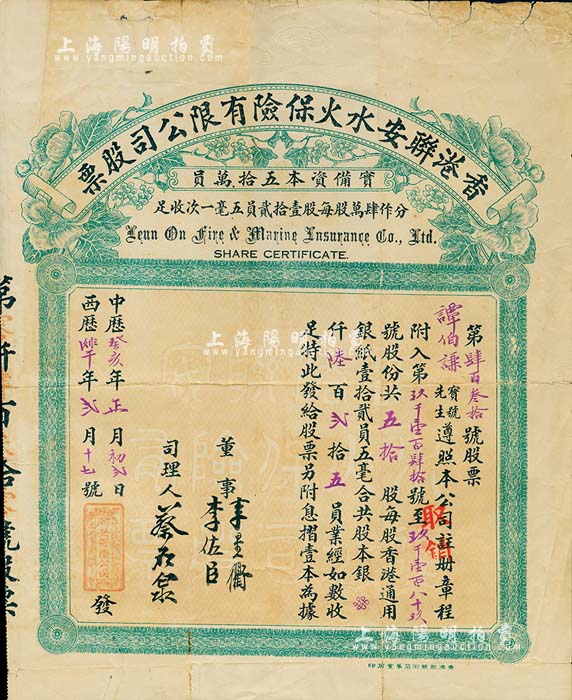 上海陽明拍賣
www.yangmingauction.com
香港聯安水火保險有限公司股票
實備資本五拾萬員
分作肆萬股每股壹拾貳員五毫一次收足
Luen On Fire & Marine Insurance Co., Ltd.
SHARE CERTIFICATE.
第肆百叁拾號股票
譚伯謙寶號先生遵照本公司註册章程
附入第玖千壹百肆拾號至玖千壹百八十玖
號股份共五拾股每股香港通用
銀紙壹拾貳員五毫合共股本銀
仟陸百弍拾五員業經如數收
足特此發給股票另附息摺壹本為據
取銷
董事
李佐臣
司理人
中歷癸亥年正月初弍日
西歷年弍月十七號
發
上海陽明拍賣
www.yangmingauction.com
上海陽明拍賣
www.yangmingauction.com